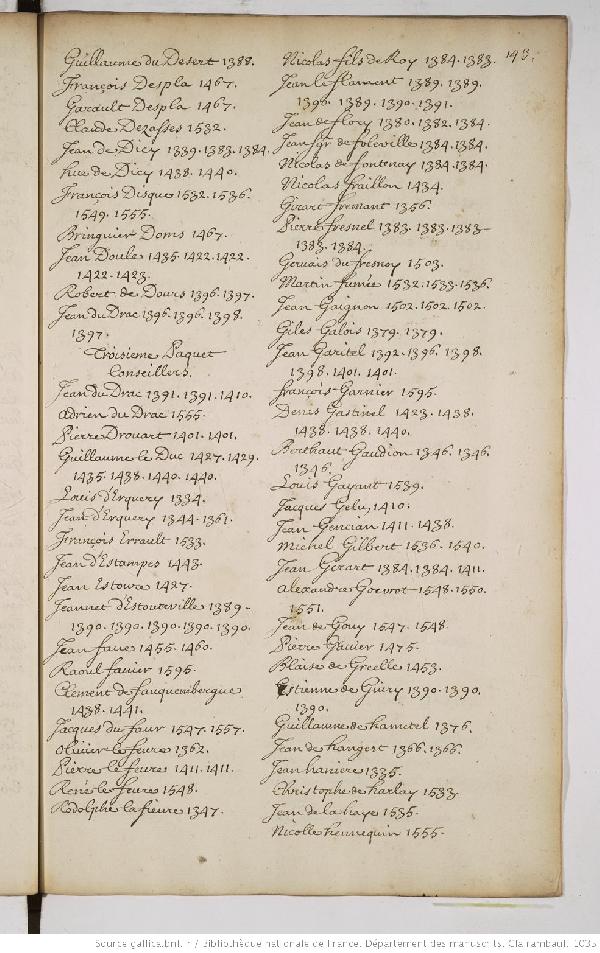 143.
Guillaume du Desert 1388.
François Despla 1467.
Garault Despla 1467.
Claude Dezasses 1532.
Jean de Dicy 1339. 1383. 1384.
Hue de Dicy 1438. 1440.
François Disque 1532. 1536.
1549. 1555.
Bringuier Doms 1467.
Jean Doule 1435. 1422. 1422.
1422. 1423.
Robert de Dours 1396. 1397.
Jean du Drac 1396. 1396. 1398.
1397.
Troisieme Paquet
Conseillers.
Jean du Drac 1391. 1391. 1410.
Adrien du Drac 1555.
Pierre Drouart 1401. 1401.
Guillaume le Duc 1427. 1429.
1435. 1438. 1440. 1440.
Louis d'Erquery 1334.
Jean d'Erquery 1344. 1361.
François Errault 1533.
Jean d'Estampes 1443.
Jean Estouve 1427.
Jeannet d'Estouteville 1389-
1390. 1390. 1390. 1390. 1390.
Jean faue 1455. 1460.
Raoul fauier 1595.
Clement de fauquembergue
1438. 1441.
Jacques du faur 1547. 1557.
Oliuier le feure 1362.
Pierre le feure 1411. 1411.
René le feure 1548.
Rodolphe la fieure 1347.
Nicolas fils de Roy 1384. 1383.
Jean le flament 1389. 1389.
1390. 1389. 1390. 1391.
Jean de flory 1380. 1382. 1384.
Jean sgr de foleville 1384. 1384.
Nicolas de fontenay 1384. 1384.
Nicolas fraillon 1434.
Girart fremant 1356.
Pierre fresnel 1383. 1383. 1383-
1383. 1384.
Geruais du fresnoy 1503.
Martin fumée 1532. 1533. 1536.
Jean Gaignon 1502. 1502. 1502.
Giles Galois 1379. 1379.
Jean Garitel 1392. 1396. 1398.
1398. 1401. 1401.
françois Garnier 1595.
Denis Gastinel 1423. 1438.
1438. 1438. 1440.
Berthaut Gaudion 1346. 1346.
1346.
Louis Gayant 1539.
Jacques Gelu, 1410.
Jean Gencian 1411. 1438.
Michel Gilbert 1536. 1540.
Jean Girart 1384. 1384. 1411.
Alexandre Gorrot 1548. 1550.
1551.
Jean de Gouy 1547. 1548.
Pierre Gauier 1475.
Blaise de Greelle 1453.
Estienne de Giury 1390. 1390.
1390.
Guillaume de hametel 1376.
Jean de hangest 1366. 1366.
Jean haniere 1335.
Christophe de harlay 1533.
Jean de la haye 1535.
Nicolle hennequin 1555.
Source gallica.bnf.fr / Bibliothèque nationale de France. Département des manuscrits. Clairambault 1035